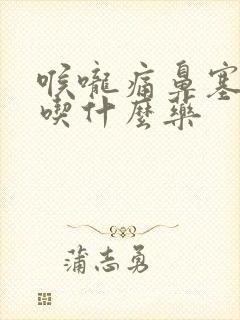 喉嚨痛鼻塞
喫什麼藥
蒲志勇